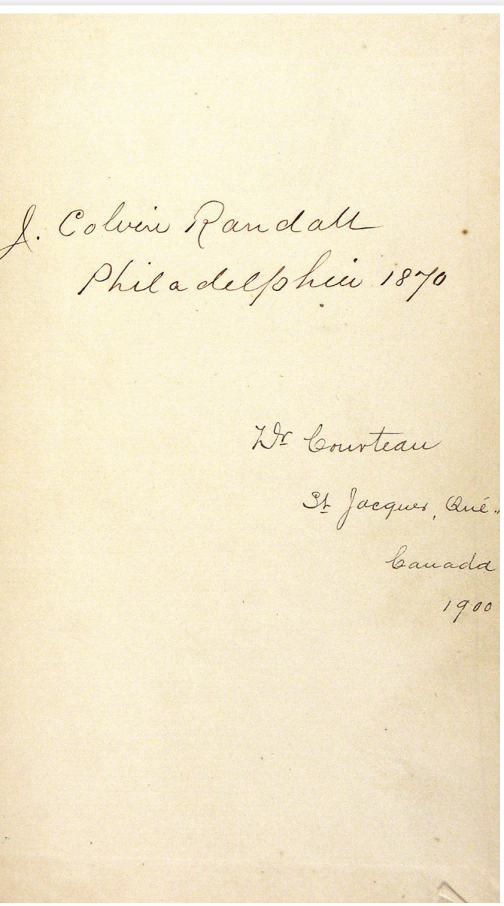 J. Colvin Randall
Philadelphia 1870
Dr Courteau
St Jacques, Qué..
Canada
1900